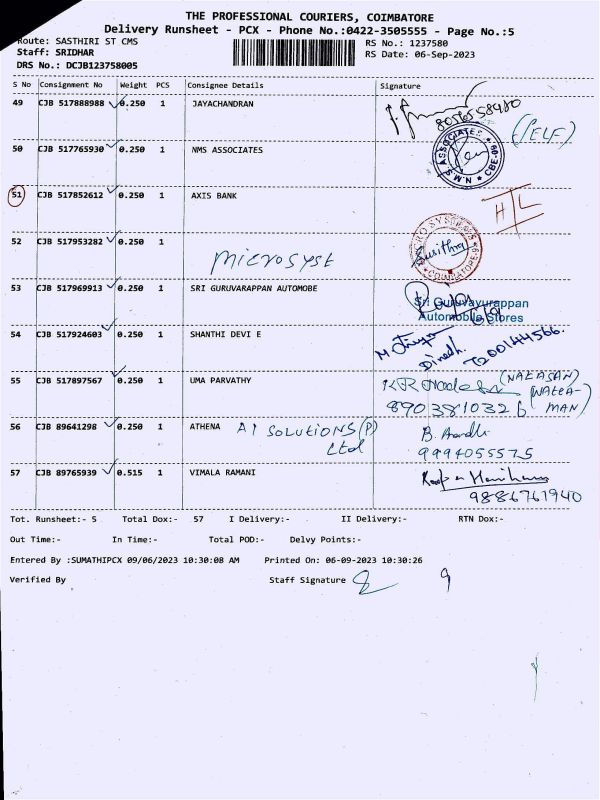 THE PROFESSIONAL COURIERS, COIMBATORE
Delivery Runsheet - PCX - Phone No.:0422-3505555 - Page No.:5
Route: SASTHIRI ST CMS
RS No.: 1237580
Staff: SRIDHAR
RS Date: 06-Sep-2023
DRS No.: DCJB123758005
S No Consignment No Weight PCS Consignee Details Signature
49 CJB 517888988 0.250 1 JAYACHANDRAN
8056558980
50 CJB 517765930 0.250 1 NMS ASSOCIATES
(SELF)
N.M.S ASSOCIATES CBE-09
51 CJB 517852612 0.250 1 AXIS BANK
H/L
52 CJB 517953282 0.250 1
Microsyst
MICRO SYSTEMS COIMBATORE
53 CJB 517969913 0.250 1 SRI GURUVARAPPAN AUTOMOBE
Sri Guruvayurappan
Automobile Stores
54 CJB 517924603 0.250 1 SHANTHI DEVI E
Dinesh. 7200144566.
55 CJB 517897567 0.250 1 UMA PARVATHY
8903810326
56 CJB 89641298 0.250 1 ATHENA AI SOLUTIONS (P)
Ltd
9994055575
57 CJB 89765939 0.515 1 VIMALA RAMANI
9886761940
Tot. Runsheet:- 5 Total Dox:- 57 I Delivery:- II Delivery:- RTN Dox:-
Out Time:- In Time:- Total POD:- Delvy Points:-
Entered By :SUMATHIPCX 09/06/2023 10:30:08 AM Printed On: 06-09-2023 10:30:26
Verified By Staff Signature